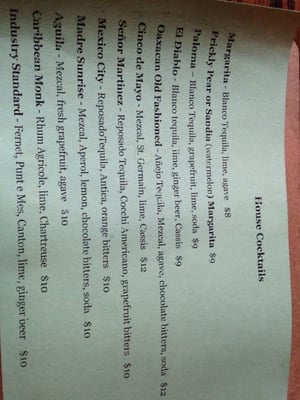 House Cocktails
Margarita - Blanco Tequila, lime, agave $8
Prickly Pear or Sandia (watermelon) Margarita $9
Paloma – Blanco Tequila, grapefruit, lime, soda $9
El Diablo - Blanco tequila, lime, ginger beer, Cassis $9
Oaxacan Old Fashioned - Añejo Tequila, Mezcal, agave, chocolate bitters, soda $12
Cinco de Mayo - Mezcal, St. Germain, lime, Cassis $12
Señor Martinez - Reposado Tequila, Cocchi Americano, grapefruit bitters $10
Mexico City - Reposado Tequila, Antica, orange bitters $10
Madre Sunrise - Mezcal, Aperol, lemon, chocolate bitters, soda $10
Aguila - Mezcal, fresh grapefruit, agave $10
Caribbean Monk - Rhum Agricole, lime, Chartreuse $10
Industry Standard - Fernet, Punt e Mes, Canton, lime, ginger beer $10